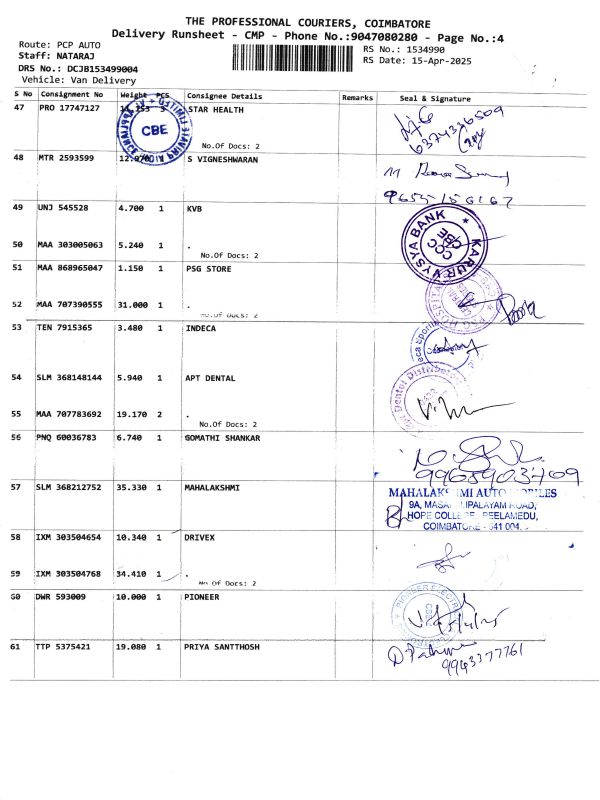 THE PROFESSIONAL COURIERS, COIMBATORE
Delivery Runsheet - CMP - Phone No.:9047080280 - Page No.:4
Route: PCP AUTO
Staff: NATARAJ
DRS No.: DCJB153499004
Vehicle: Van Delivery
RS No.: 1534990
RS Date: 15-Apr-2025
S No Consignment No Weight PCS Consignee Details Remarks Seal & Signature
47 PRO 17747127 3 STAR HEALTH
CBE
6374336509
No.Of Docs: 2
48 MTR 2593599 S VIGNESHWARAN
49 UNJ 545528 4.700 1 KVB
KARUR VYSYA BANK
50 MAA 303005063 5.240 1 .
No.Of Docs: 2
51 MAA 868965047 1.150 1 PSG STORE
52 MAA 707390555 31.000 1 .
No.Of Docs: 2
53 TEN 7915365 3.480 1 INDECA
54 SLM 368148144 5.940 1 APT DENTAL
55 MAA 707783692 19.170 2 .
No.Of Docs: 2
56 PNQ 60036783 6.740 1 GOMATHI SHANKAR
57 SLM 368212752 35.330 1 MAHALAKSHMI
HOPE COLLEGE, PEELAMEDU,
58 IXM 303504654 10.340 1 DRIVEX
59 IXM 303504768 34.410 1 .
No Of Docs: 2
60 DWR 593009 10.000 1 PIONEER
61 TTP 5375421 19.080 1 PRIYA SANTTHOSH
9943377761